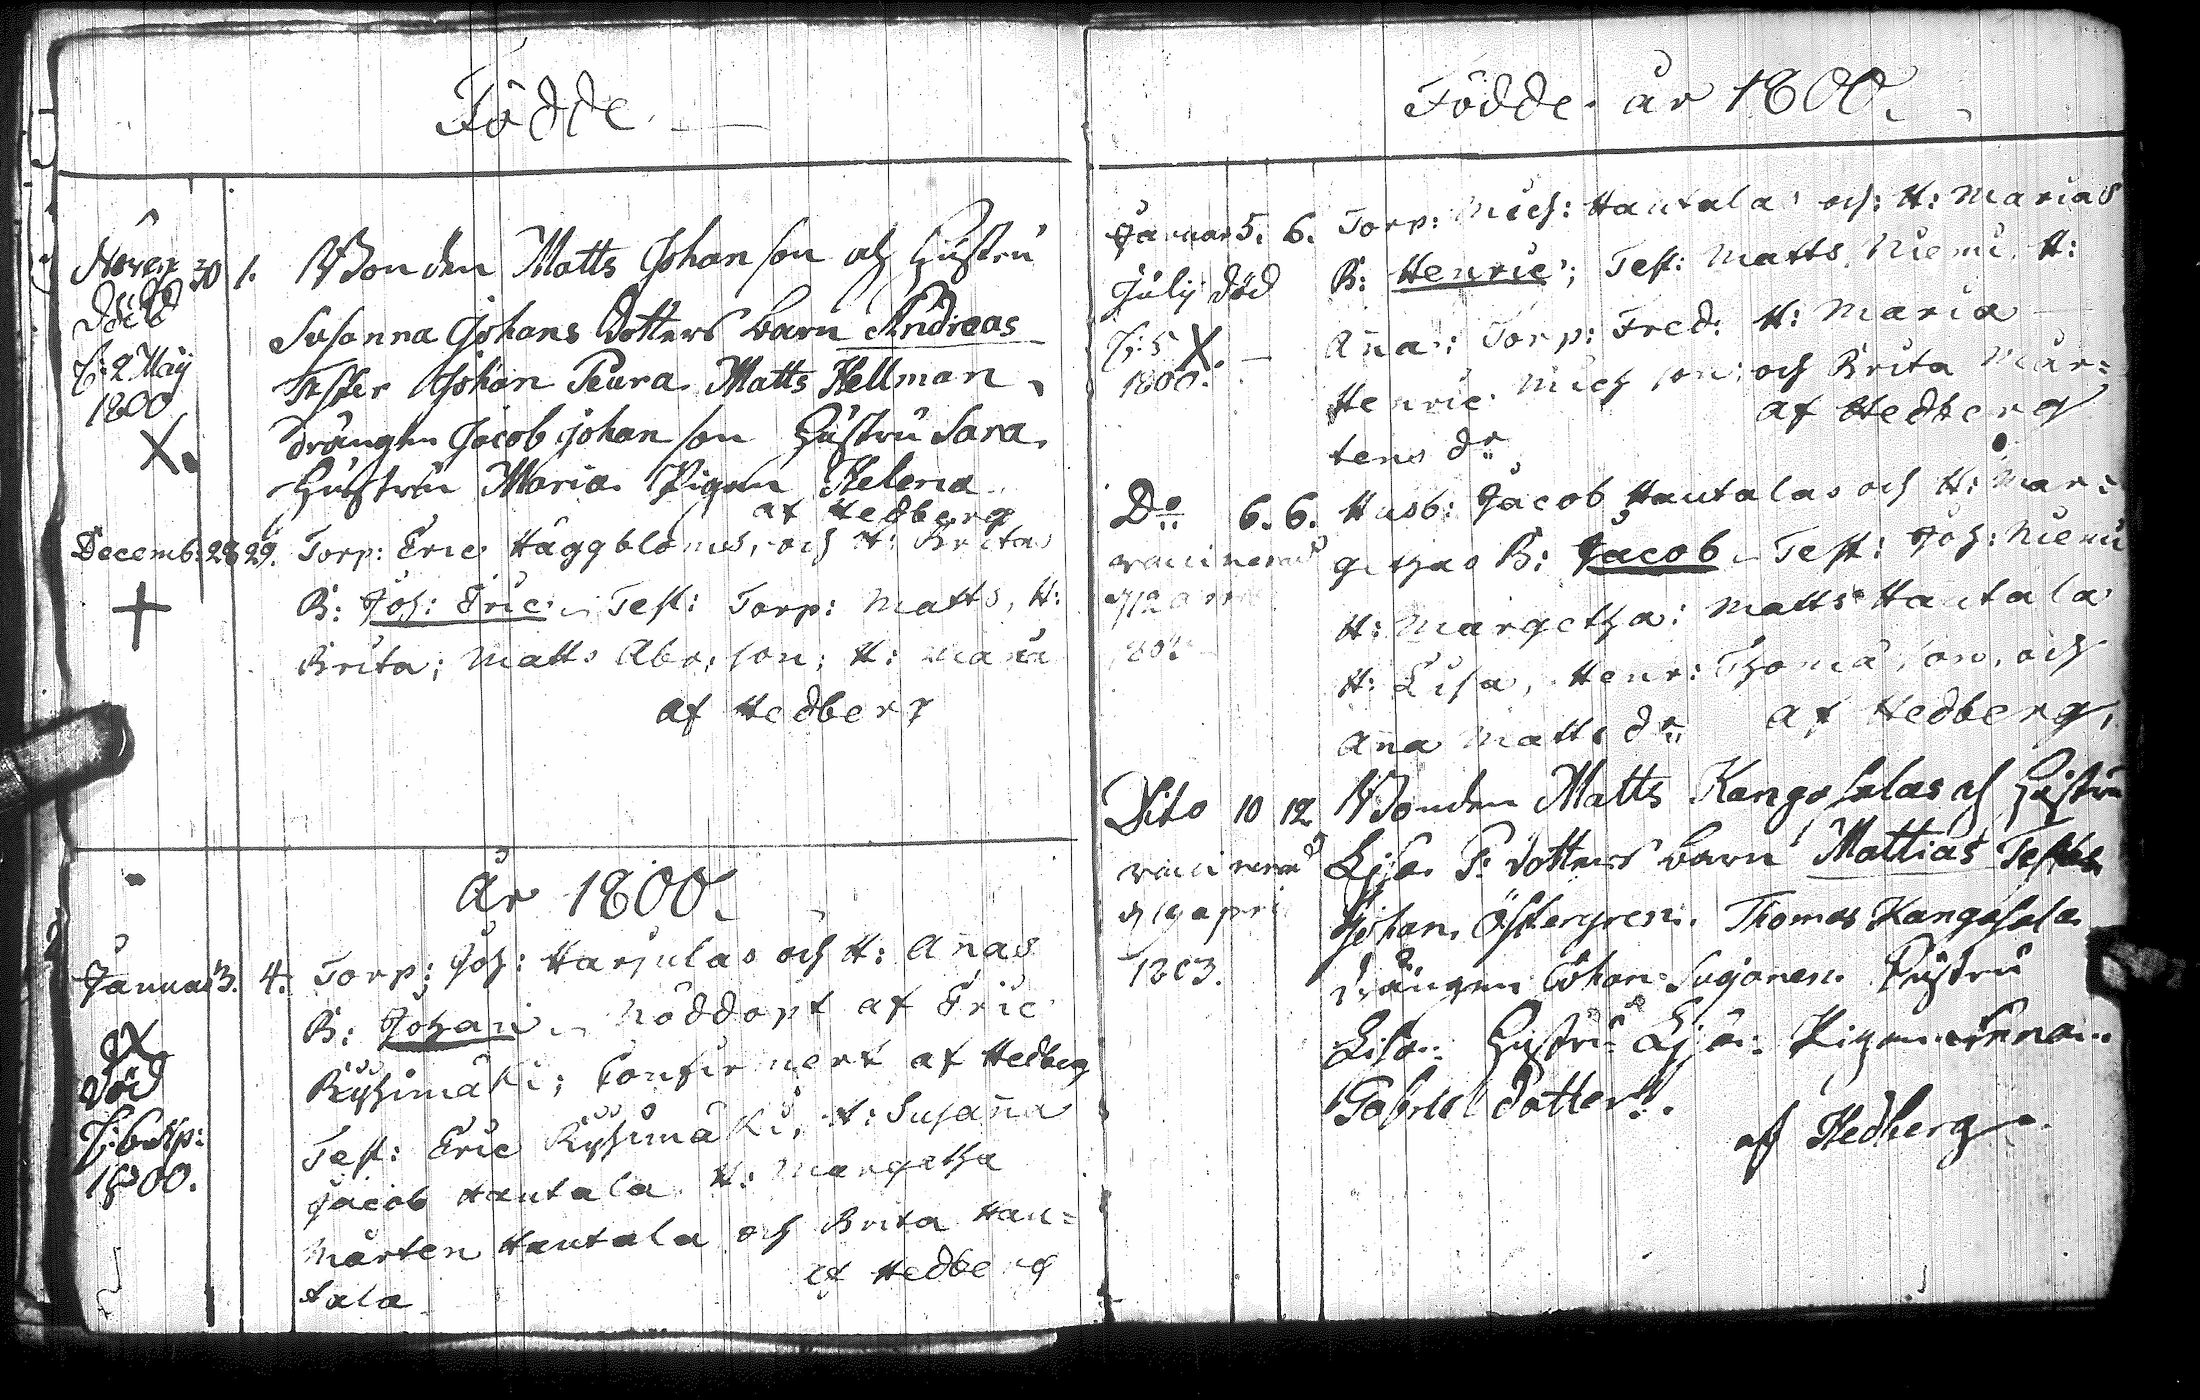 Födde
Novemb 30 1. Bonden Matts Johansson och Hustru
Död
Susanna Johans dotters barn Andreas
d: 2 Maij
1800
Tester Johan Peura. Matts Hellman.
X.
Drängen Jacob Johansson Hustru Sara.
Hustrun Maria. Pigan Helena
af Hedberg
Decemb: 28 29. Torp: Eric Häggbloms, och H: Britas
+
B: Joh: Eric. Test: Torp: Matts, H:
Brita; Matts Abr:son; H: Maria
af Hedberg
År 1800.
Januar 3. 4. Torp: Joh: Harjulas och H: Annas
B: Johan. Nöddöpt af Eric
X
Död
Ryhimäki; Confirmert af Hedberg
d: 6 Ap:
1800.
Test: Eric Ryhimäki, H: Susanna
Jacob Hautala. H: Margetha
Mårten Hautala och Brita Hau=
tala
af Hedberg
Födde år 1800.
Januar 5. 6. Torp: Mich: Hautalas och: H: Marias
July död
B: Henric; Test: Matts Niemi, H:
d: 5 X.
1800.
Anna; Torp: Fred: H: Maria
Henric Michson; och Brita Mår=
tens dr
af Hedberg
Do 6. 6. Husb: Jacob Hautalas och H: Mar=
vaccinerad
gethas B: Jacob. Test: Joh: Niemi
d 12
H: Margetha; Matts Hautala
H: Lisa, Henr: Thomasson, och
Anna Matts dr
af Hedberg,
Dito 10 12 Bonden Matts Kangosalas och Hustru
vaccinerad
Lisa P: dotters barn Mattias Tester
d 19 april
1803.
Johan Östergren. Thomas Kangosala
drängen Johan Sugonen. Hustru
Lisa. Hustru Lisa. Pigan Anna
Gabriels dotter.
af Hedberg.